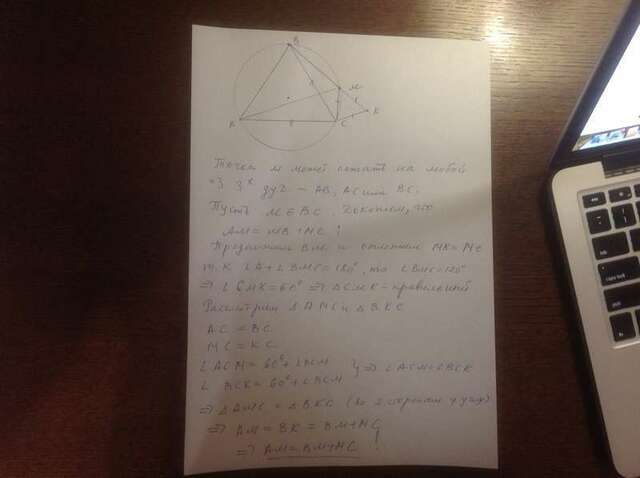 B
M
K
C
Точка M может лежать на любой
из 3х дуг - AB, AC или BC.
Пусть M ∈ BC. Докажем, что
AM = MB + MC
Продолжим BM и отложим MK = MC
т.к. ∠A + ∠BMC = 180°, то ∠BMC = 120°
⇒ ∠CMK = 60° ⇒ △CMK - правильный
Рассмотрим △AMC и △BKC
AC = BC
MC = KC
∠ACM = 60° + ∠BCM } ⇒ ∠ACM = ∠BCK
∠BCK = 60° + ∠BCM
⇒ △AMC = △BKC (по 2 сторонам и углу)
⇒ AM = BK = BM + MC
⇒ AM = BM + MC !